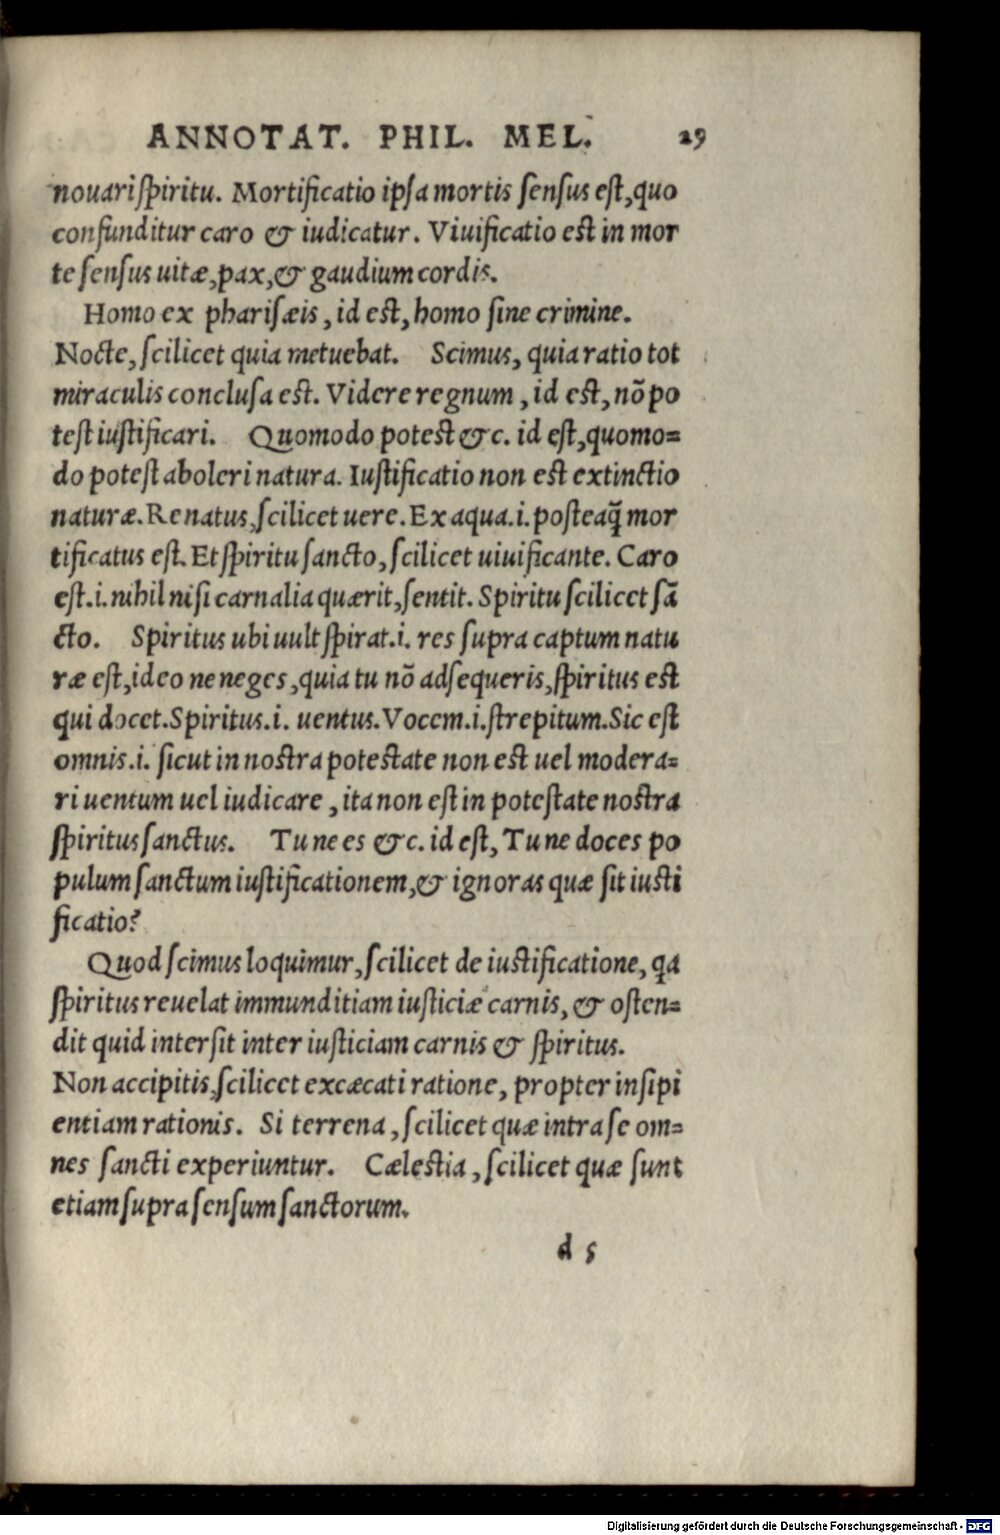 ANNOTAT. PHIL. MEL. 29
nouari ſpiritu. Mortificatio ipſa mortis ſenſus eſt, quo
confunditur caro & iudicatur. Viuificatio eſt in mor
te ſenſus uitæ, pax, & gaudium cordis.
Homo ex phariſæis, id eſt, homo ſine crimine.
Nocte, ſcilicet quia metuebat. Scimus, quia ratio tot
miraculis concluſa eſt. Videre regnum, id eſt, nõ po
teſt iuſtificari. Quomodo poteſt &c. id eſt, quomo=
do poteſt aboleri natura. Iuſtificatio non eſt extinctio
naturæ. Renatus, ſcilicet uere. Ex aqua .i. poſteaq̃ mor
tificatus eſt. Et ſpiritu ſancto, ſcilicet uiuificante. Caro
eſt .i. nihil niſi carnalia quærit, ſentit. Spiritu ſcilicet ſã
cto. Spiritus ubi uult ſpirat .i. res ſupra captum natu
ræ eſt, ideo ne neges, quia tu nõ adſequeris, ſpiritus eſt
qui docet. Spiritus .i. uentus. Vocem .i. ſtrepitum. Sic eſt
omnis .i. ſicut in noſtra poteſtate non eſt uel modera=
ri uentum uel iudicare, ita non eſt in poteſtate noſtra
ſpiritus ſanctus. Tu ne es &c. id eſt, Tu ne doces po
pulum ſanctum iuſtificationem, & ignoras quæ ſit iuſti
ficatio?
Quod ſcimus loquimur, ſcilicet de iuſtificatione, qa
ſpiritus reuelat immunditiam iuſticiæ carnis, & oſten=
dit quid interſit inter iuſticiam carnis & ſpiritus.
Non accipitis, ſcilicet excæcati ratione, propter inſipi
entiam rationis. Si terrena, ſcilicet quæ intra ſe om=
nes ſancti experiuntur. Cæleſtia, ſcilicet quæ ſunt
etiam ſupra ſenſum ſanctorum.
d 5
Digitalisierung gefördert durch die Deutsche Forschungsgemeinschaft - DFG